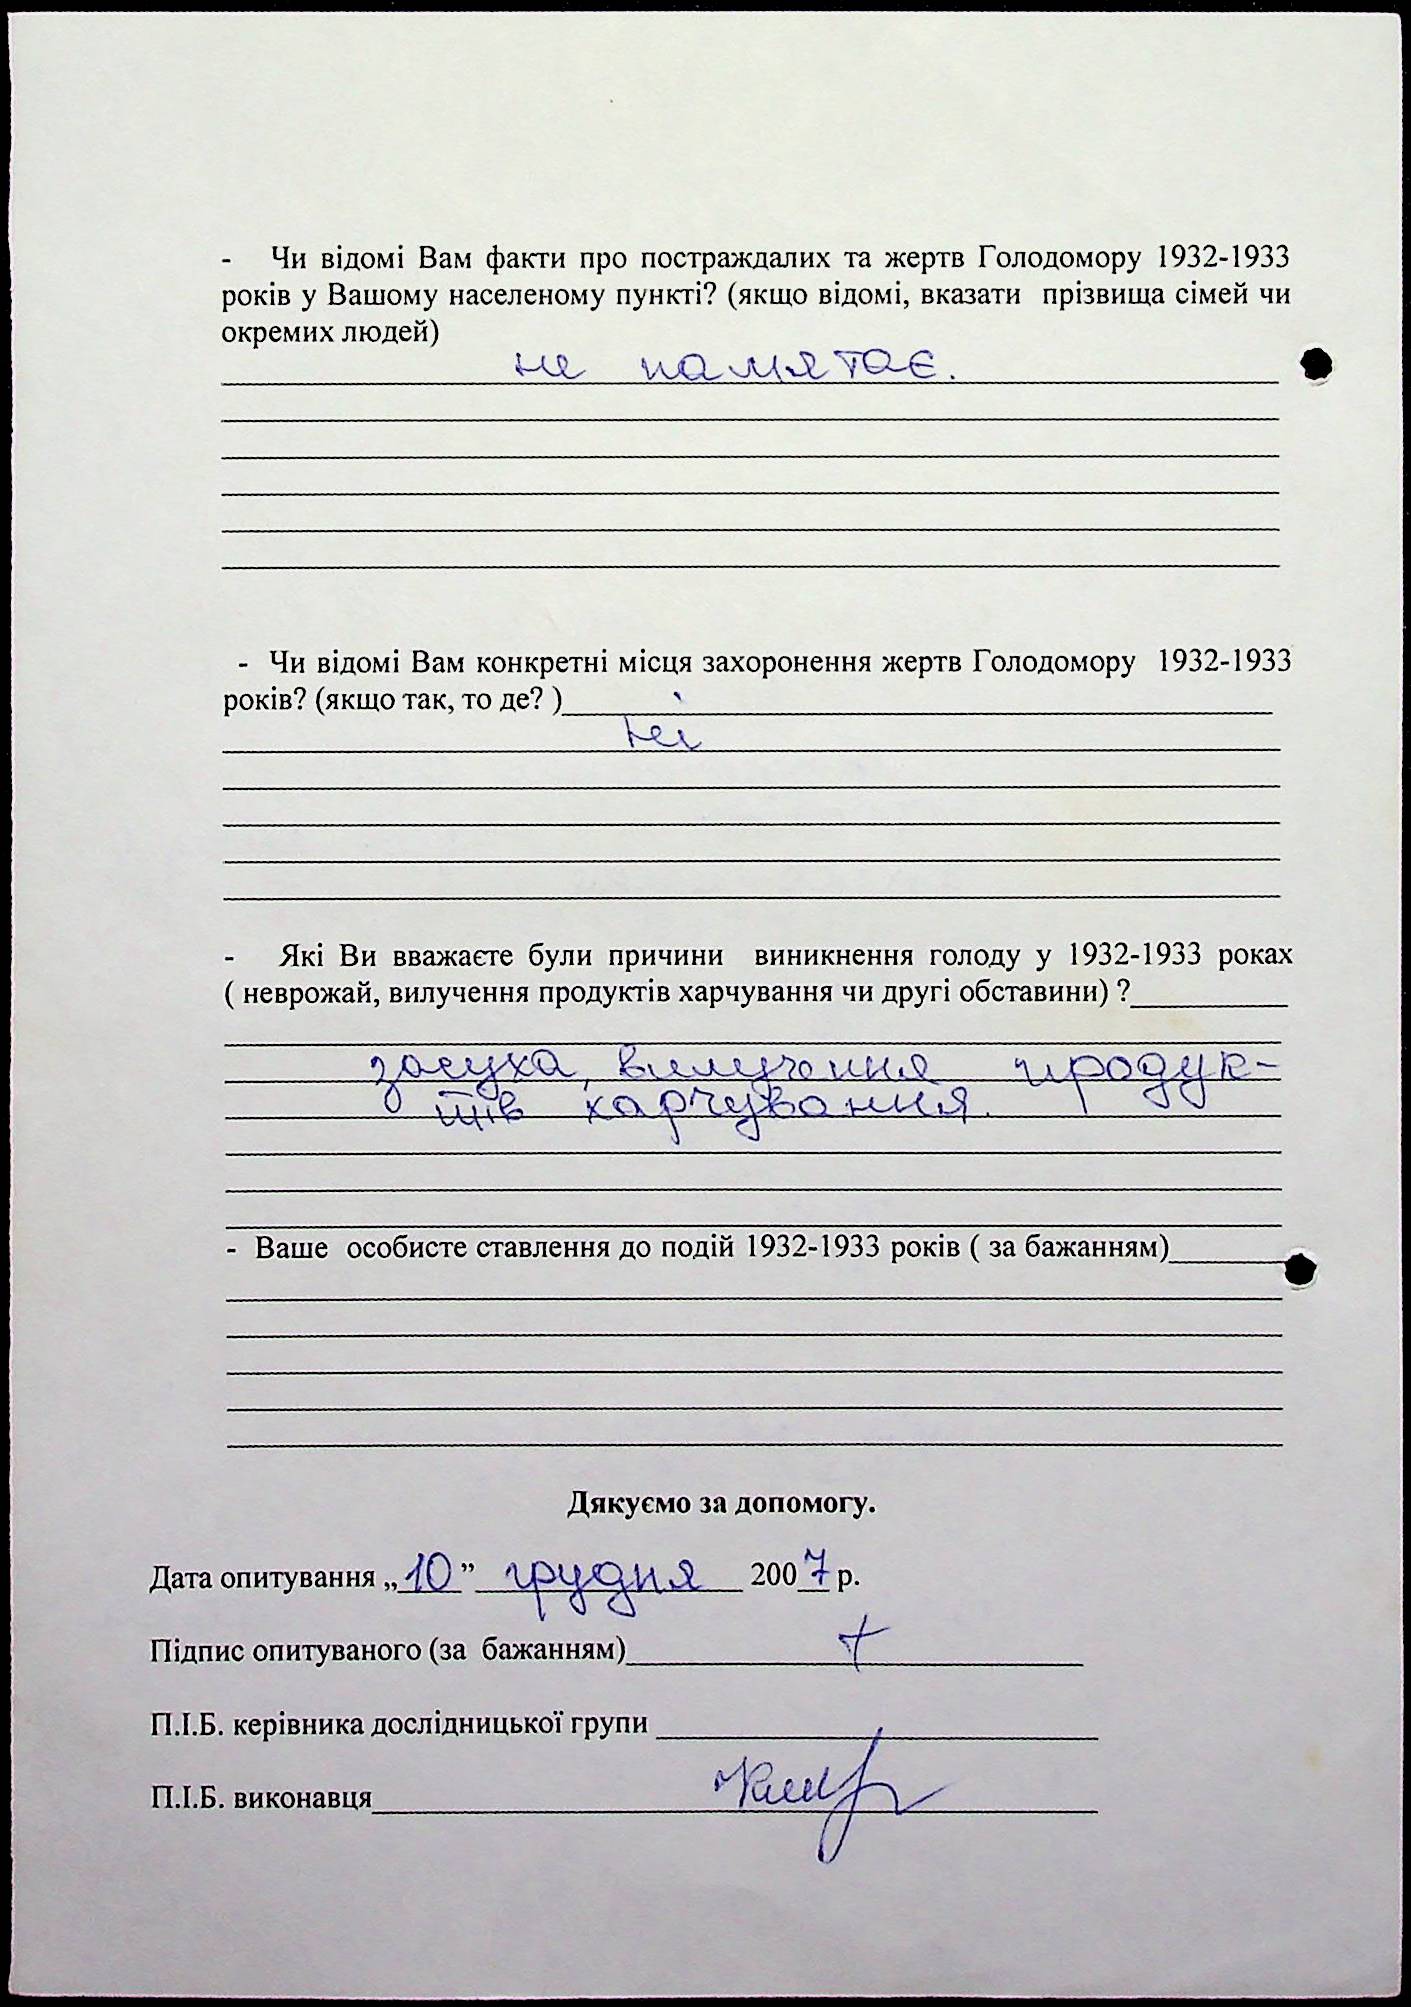 - Чи відомі Вам факти про постраждалих та жертв Голодомору 1932-1933
років у Вашому населеному пункті? (якщо відомі, вказати прізвища сімей чи
окремих людей)
не памятає.
- Чи відомі Вам конкретні місця захоронення жертв Голодомору 1932-1933
років? (якщо так, то де? )
ні
- Які Ви вважаєте були причини виникнення голоду у 1932-1933 роках
( неврожай, вилучення продуктів харчування чи другі обставини) ?
засуха, вилучення продук-
тів харчування.
- Ваше особисте ставлення до подій 1932-1933 років ( за бажанням)
Дякуємо за допомогу.
Дата опитування „10” грудня 2007 р.
Підпис опитуваного (за бажанням) +
П.І.Б. керівника дослідницької групи
П.І.Б. виконавця